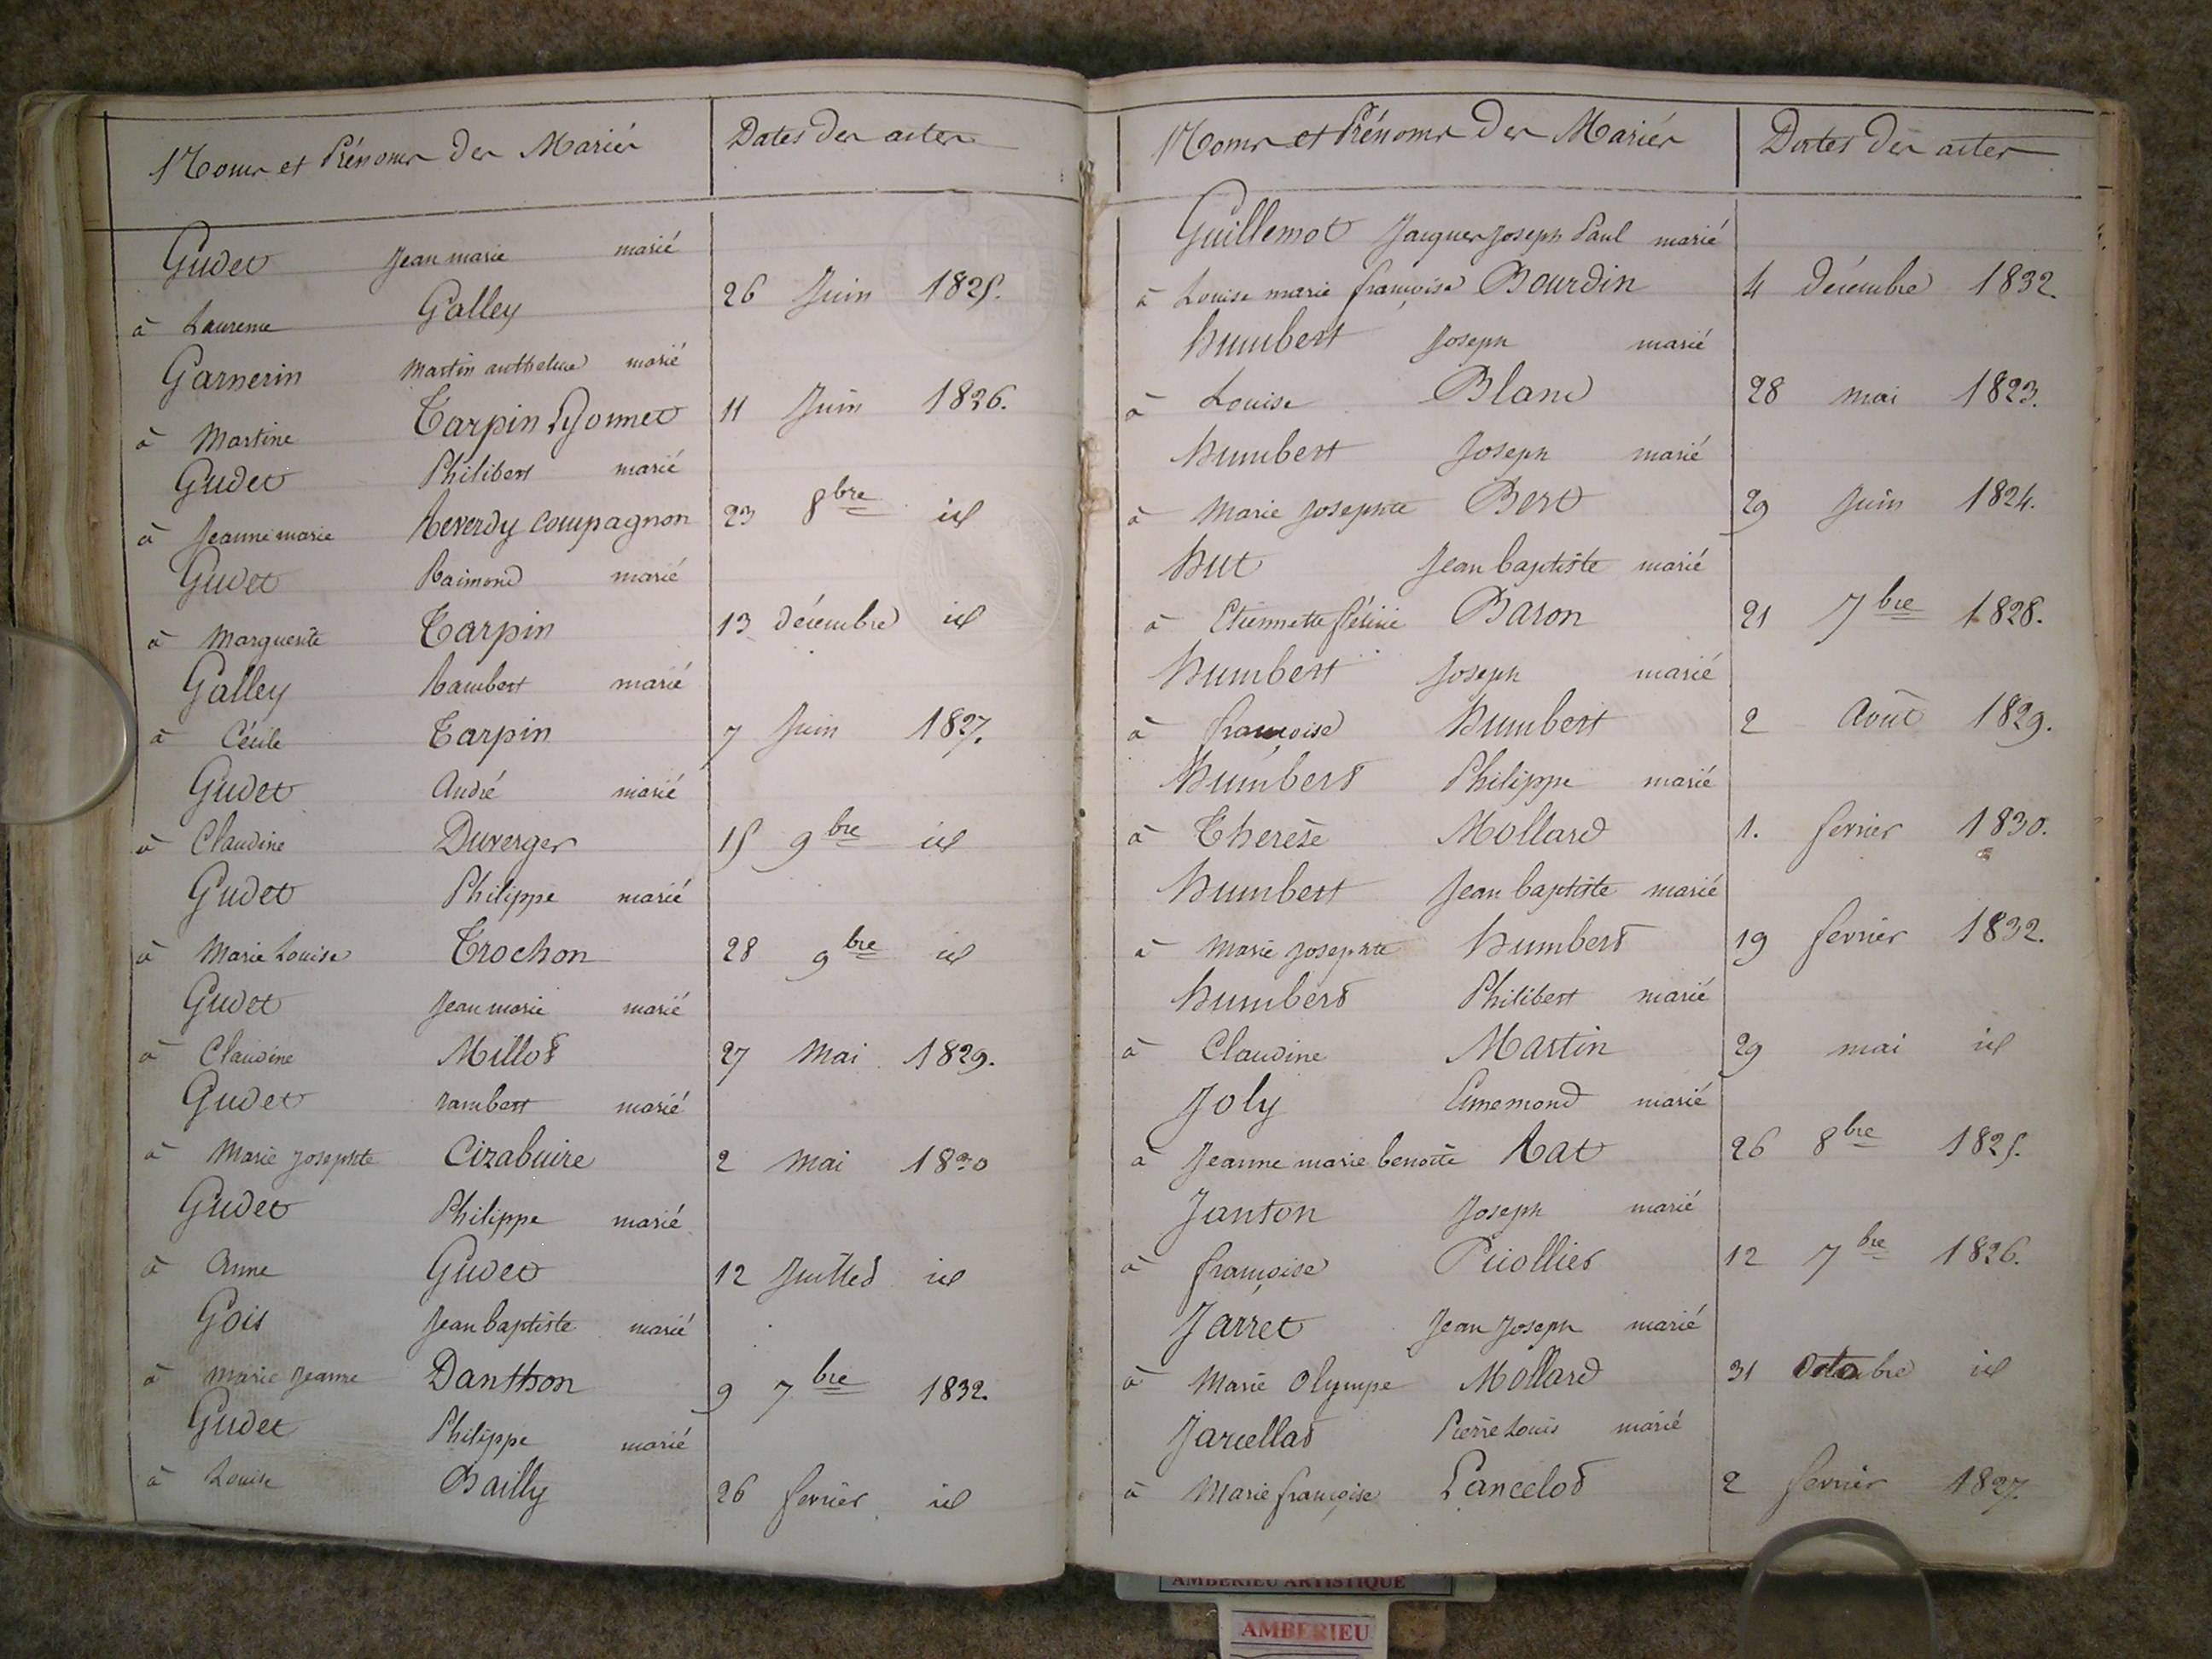 Noms et Prénoms des Mariés Dates des actes
Gudet Jean marie marié
à Laurence Galley 26 Juin 1825.
Garnerin Martin anthelme marié
à Martine Tarpin Lyonnet 11 Juin 1826.
Gudet Philibert marié
à Jeanne marie Reverdy Compagnon 23 8bre id
Gudet Raimond marié
à Marguerite Tarpin 13 décembre id
Galley Rambert marié
à Cécile Tarpin 7 Juin 1827.
Gudet André marié
à Claudine Duverger 15 9bre id
Gudet Philippe marié
à Marie Louise Trochon 28 9bre id
Gudet Jean marie marié
à Claudine Millot 27 Mai 1829.
Gudet rambert marié
à Marie Josephte Cizabuire 2 Mai 1830
Gudet Philippe marié
à Anne Gudet 12 Juillet id
Gois Jean baptiste marié
à Marie Jeanne Danthon 9 7bre 1832.
Gudet Philippe marié
à Louise Bailly 26 fevrier id
Noms et Prénoms des Mariés Dates des actes
Guillemot Jacques Joseph Paul marié
à Louise marie françoise Bourdin 4 décembre 1832.
humbert Joseph marié
à Louise Blanc 28 mai 1823.
humbert Joseph marié
à Marie Josephte Bert 29 Juin 1824.
hut Jean baptiste marié
à Etiennette Baron 21 7bre 1828.
humbert Joseph marié
à françoise humbert 2 Août 1829.
humbert Philippe marié
à Therèse Mollard 1. fevrier 1830.
humbert Jean baptiste marié
à Marie Josephte humbert 19 fevrier 1832.
humbert Philibert marié
à Claudine Martin 29 mai id
Joly Ennemond marié
à Jeanne marie benoîte Rat 26 8bre 1825.
Janton Joseph marié
à françoise Picollier 12 7bre 1826.
Jarret Jean Joseph marié
à Marie Olympe Mollard 31 Octobre id
Jarcellat Pierre Louis marié
à Marie françoise Lancelot 2 fevrier 1827.
AMBERIEU ARTISTIQUE
AMBERIEU